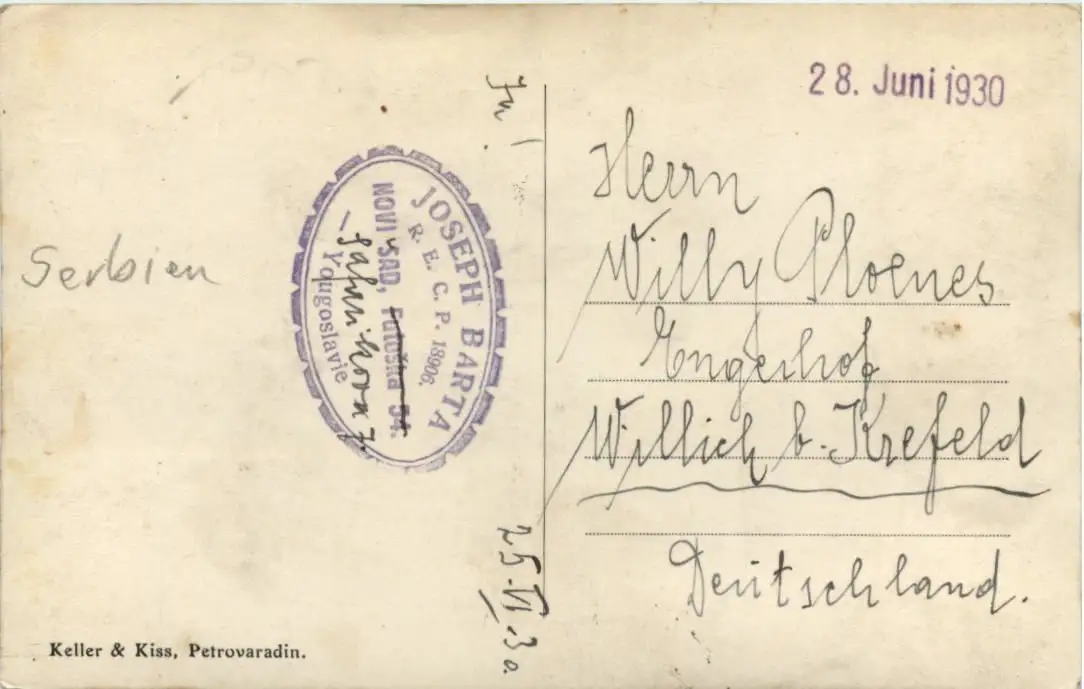 28. Juni 1930
Herrn
Willy Ploenes
Engerhof
Willich b. Krefeld
Deutschland.
Serbien
JOSEPH BARTA
R. E. C. P. 18906.
NOVI SAD, Futoška 54.
Yougoslavie
25.VI.30
Keller & Kiss, Petrovaradin.